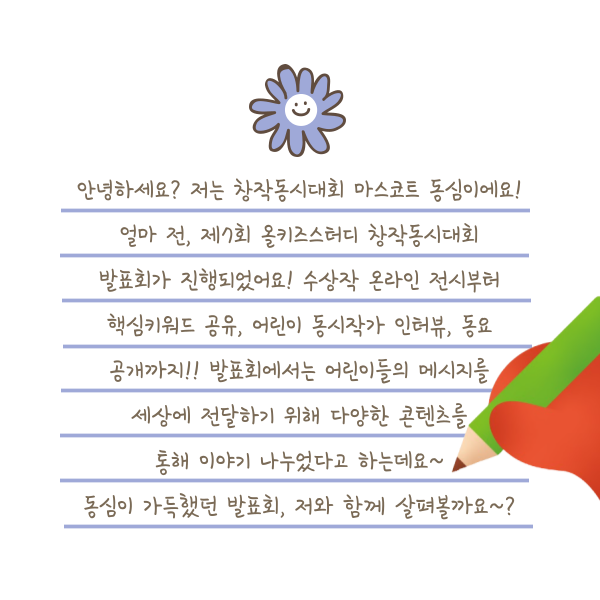 안녕하세요? 저는 창작동시대회 마스코트 동심이에요!
얼마 전, 제7회 올키즈스터디 창작동시대회
발표회가 진행되었어요! 수상작 온라인 전시부터
핵심키워드 공유, 어린이 동시작가 인터뷰, 동요
공개까지!! 발표회에서는 어린이들의 메시지를
세상에 전달하기 위해 다양한 콘텐츠를
통해 이야기 나누었다고 하는데요~
동심이 가득했던 발표회, 저와 함께 살펴볼까요~?